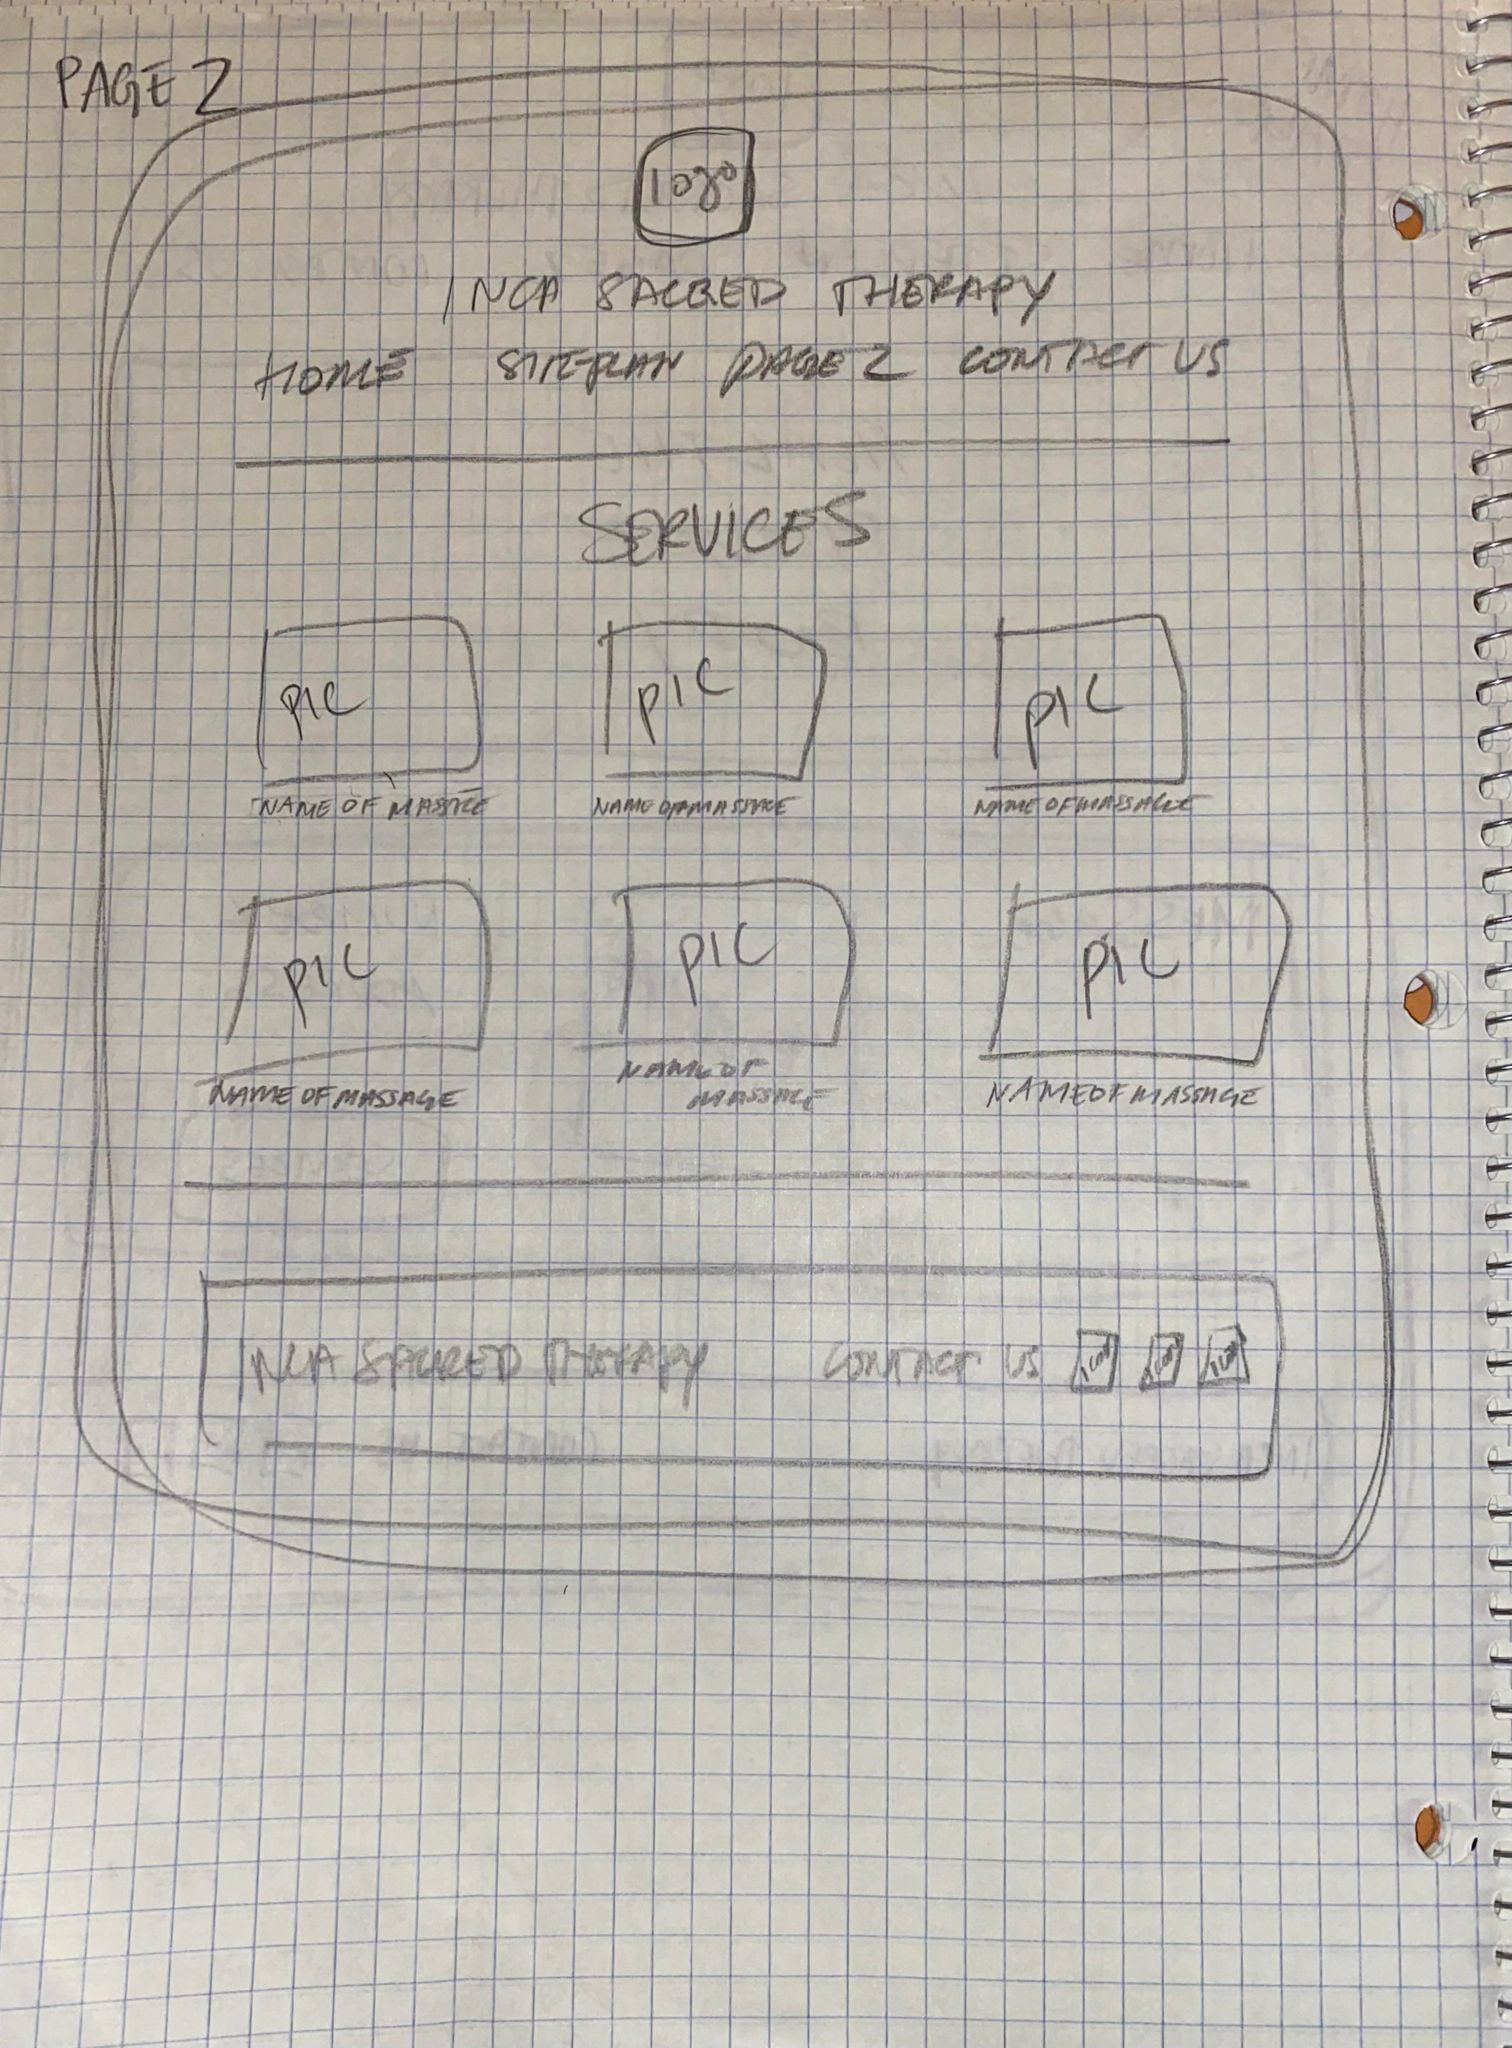 PAGE 2
logo
INCA SACRED THERAPY
HOME SITEPLAN PAGE 2 CONTACT US
SERVICES
PIC PIC PIC
NAME OF MASSAGE NAME OF MASSAGE NAME OF MASSAGE
PIC PIC PIC
NAME OF MASSAGE NAME OF MASSAGE NAME OF MASSAGE
INCA SACRED THERAPY CONTACT US ICON ICON ICON